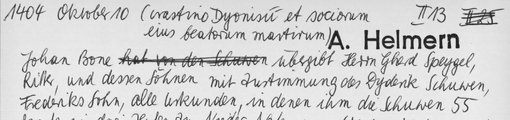 1404 Oktober 10 (crastino Dyonisii et sociorum II 13
eius beatorum martirum) A. Helmern
Johan Bone hat von den Schuwen übergibt Herrn Gherd Speygel,
Ritter, und dessen Söhnen mit Zustimmung des Dyderik Schuwen,
Frederiks Sohn, alle Urkunden, in denen ihm die Schuwen 55